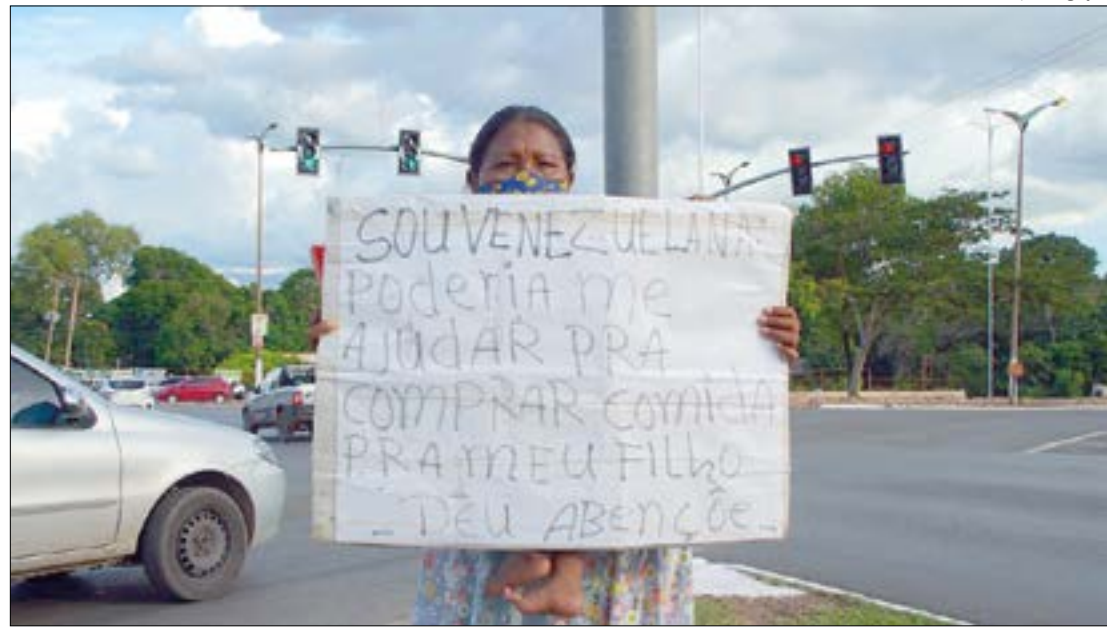 SOU VENEZUELANA
PodeRIA me
AJUdAR PRA
COMPRAR COMIdA
PRA MEU FILhO
_ DEU ABENÇÕE _